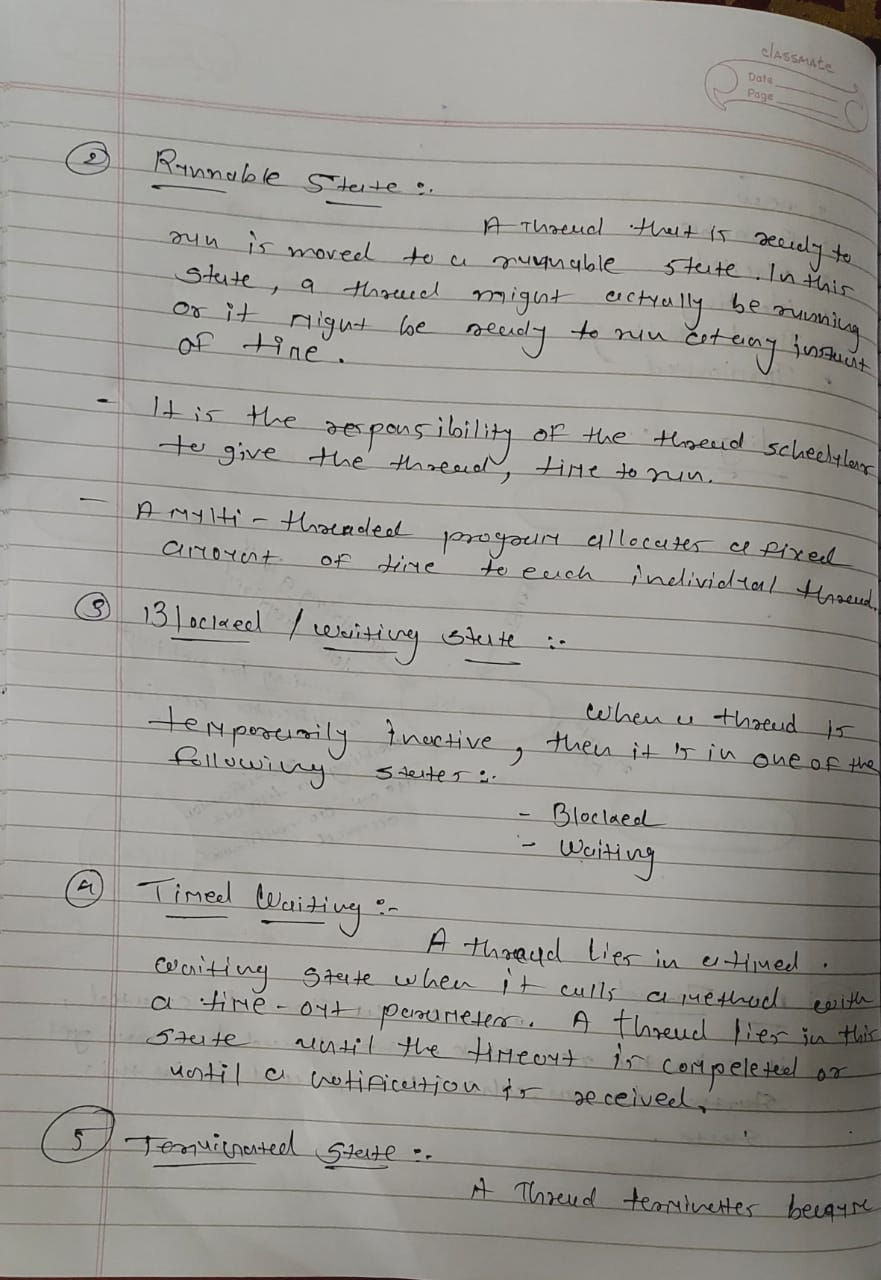 classmate
Date
Page
② Runnable State :-
A Thread that is ready to
run is moved to a runnable state. In this
state, a thread might actually be running
or it might be ready to run at any instant
of time.
- It is the responsibility of the thread scheduler
to give the thread, time to run.
- A multi-threaded program allocates a fixed
amount of time to each individual thread.
③ Blocked / waiting state :-
When a thread is
temporarily Inactive, then it is in one of the
following states :-
- Blocked
- Waiting
④ Timed Waiting :-
A thread lies in a timed
waiting state when it calls a method with
a time-out parameter. A thread lies in this
state until the timeout is compeleted or
until a notification is received.
⑤ Terminated State :-
A Thread terminates because